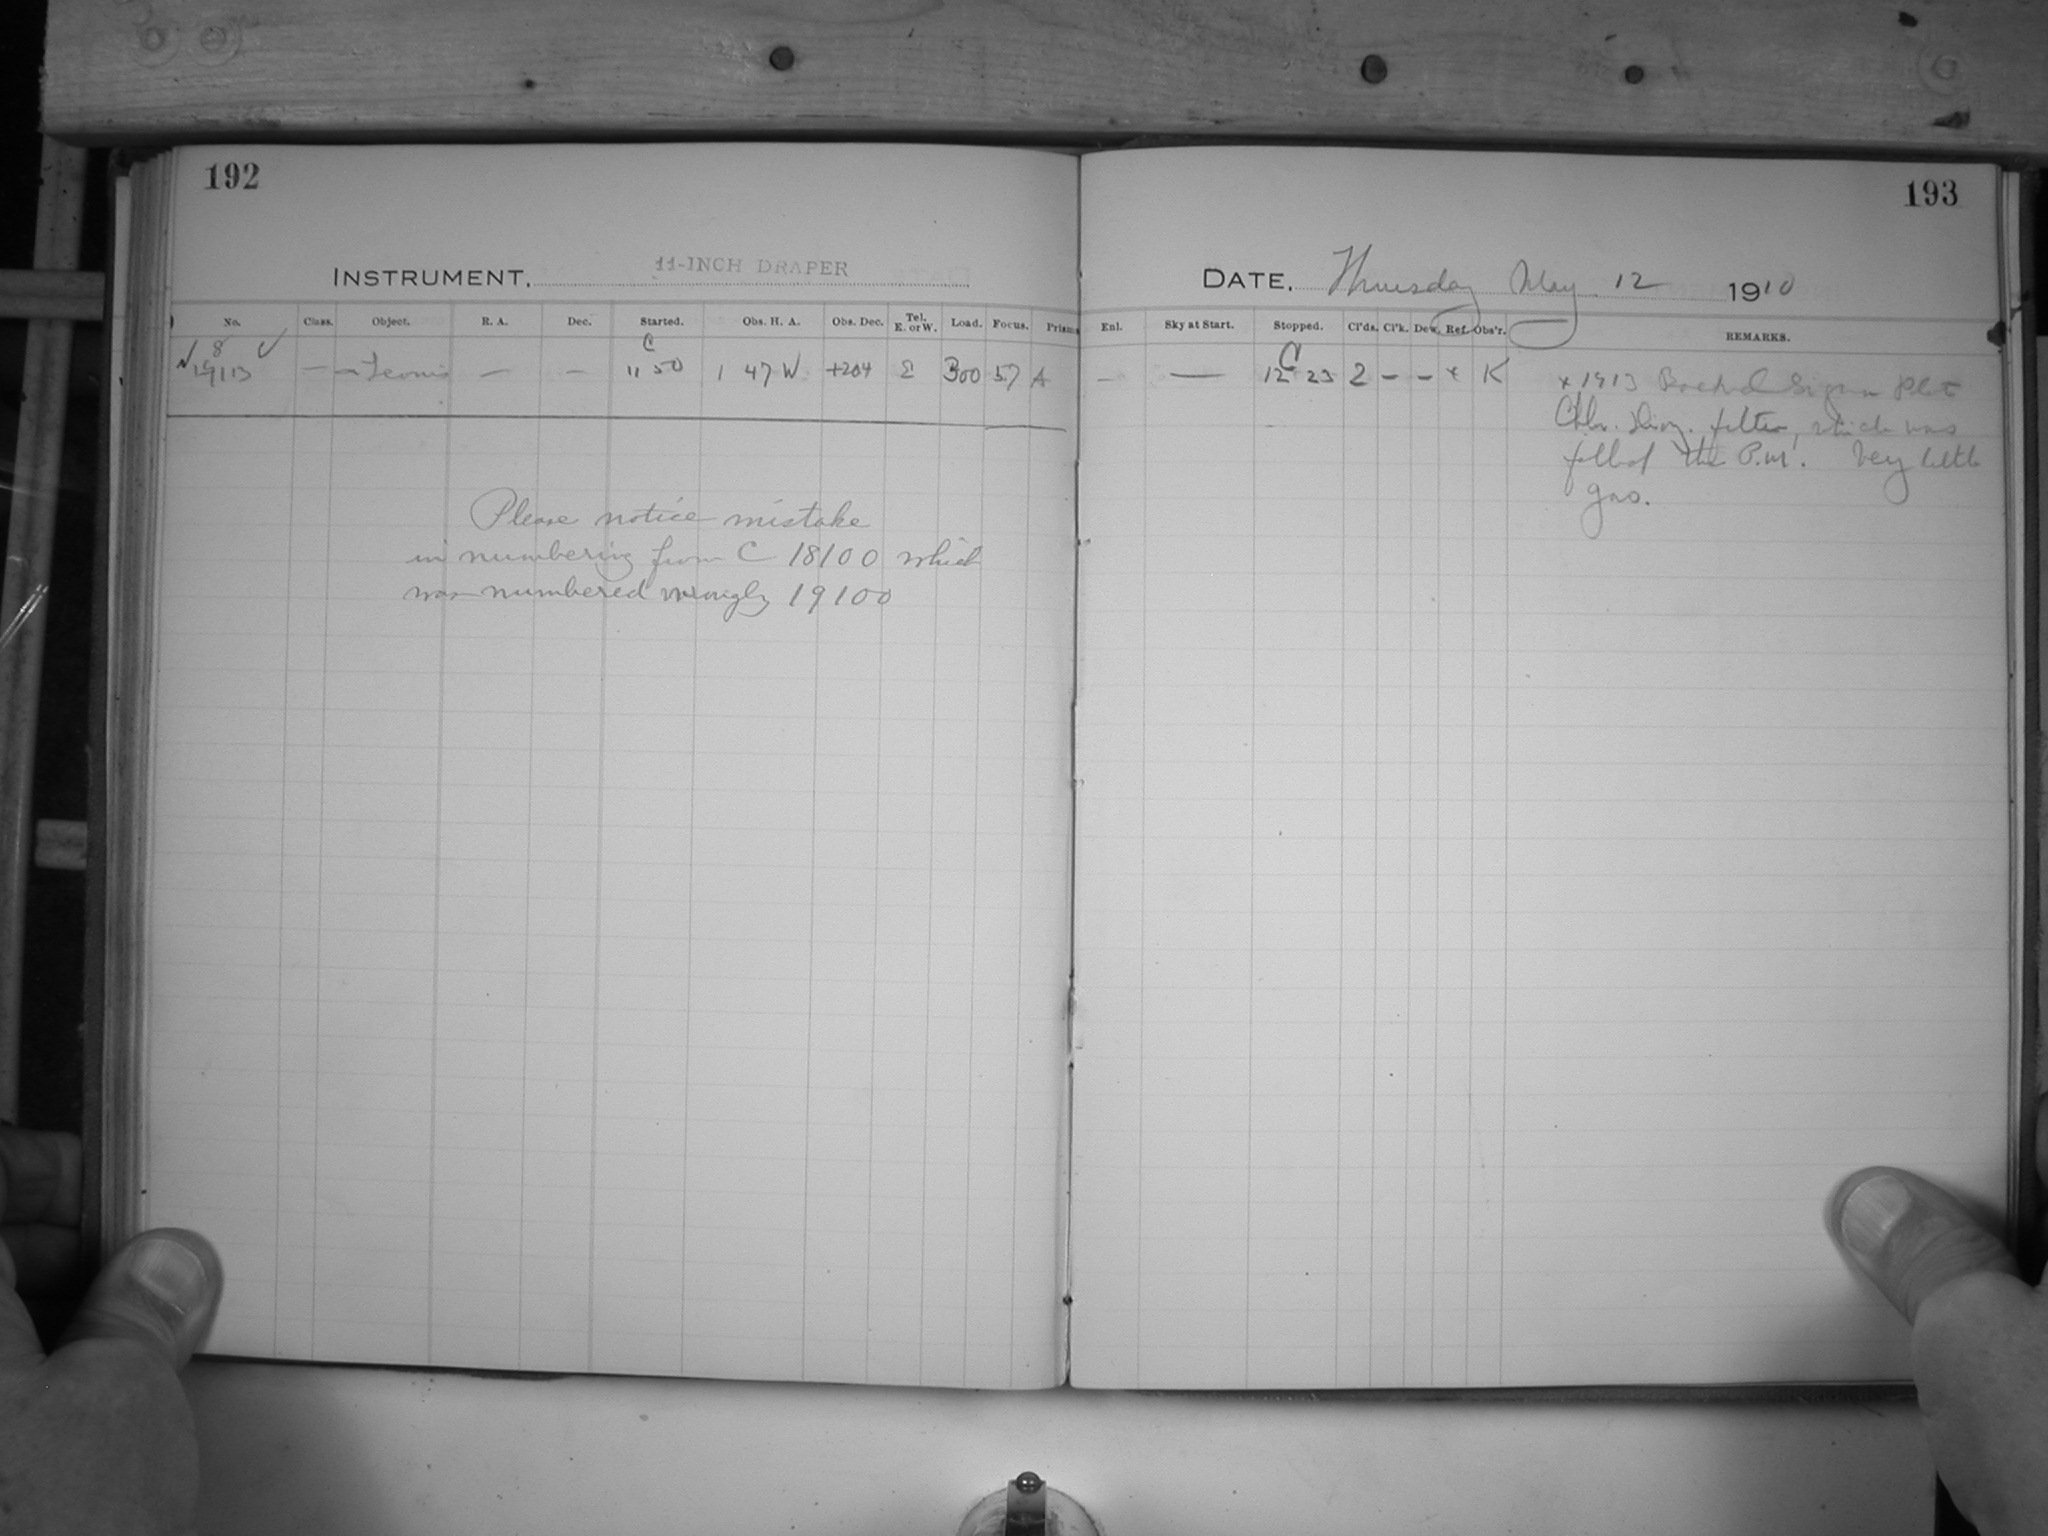 192
INSTRUMENT. 11-INCH DRAPER
No. Class. Object. R. A. Dec. Started. Obs. H. A. Obs. Dec. Tel. E. or W. Load. Focus. Prisms
8
C
19113 — Leonis — — 11 50 1 47 W +20 4 E 300 57 A
Please notice mistake
in numbering from C 18100 which
was numbered wrongly 19100
193
DATE. Thursday May 12 1910
Enl. Sky at Start. Stopped. Cl'ds. Cl'k. Dew. Ref. Obs'r. REMARKS.
C
— — 12 23 2 — — x K
x 1913 Backed Sigma
filter, which was
the P.M. Very little